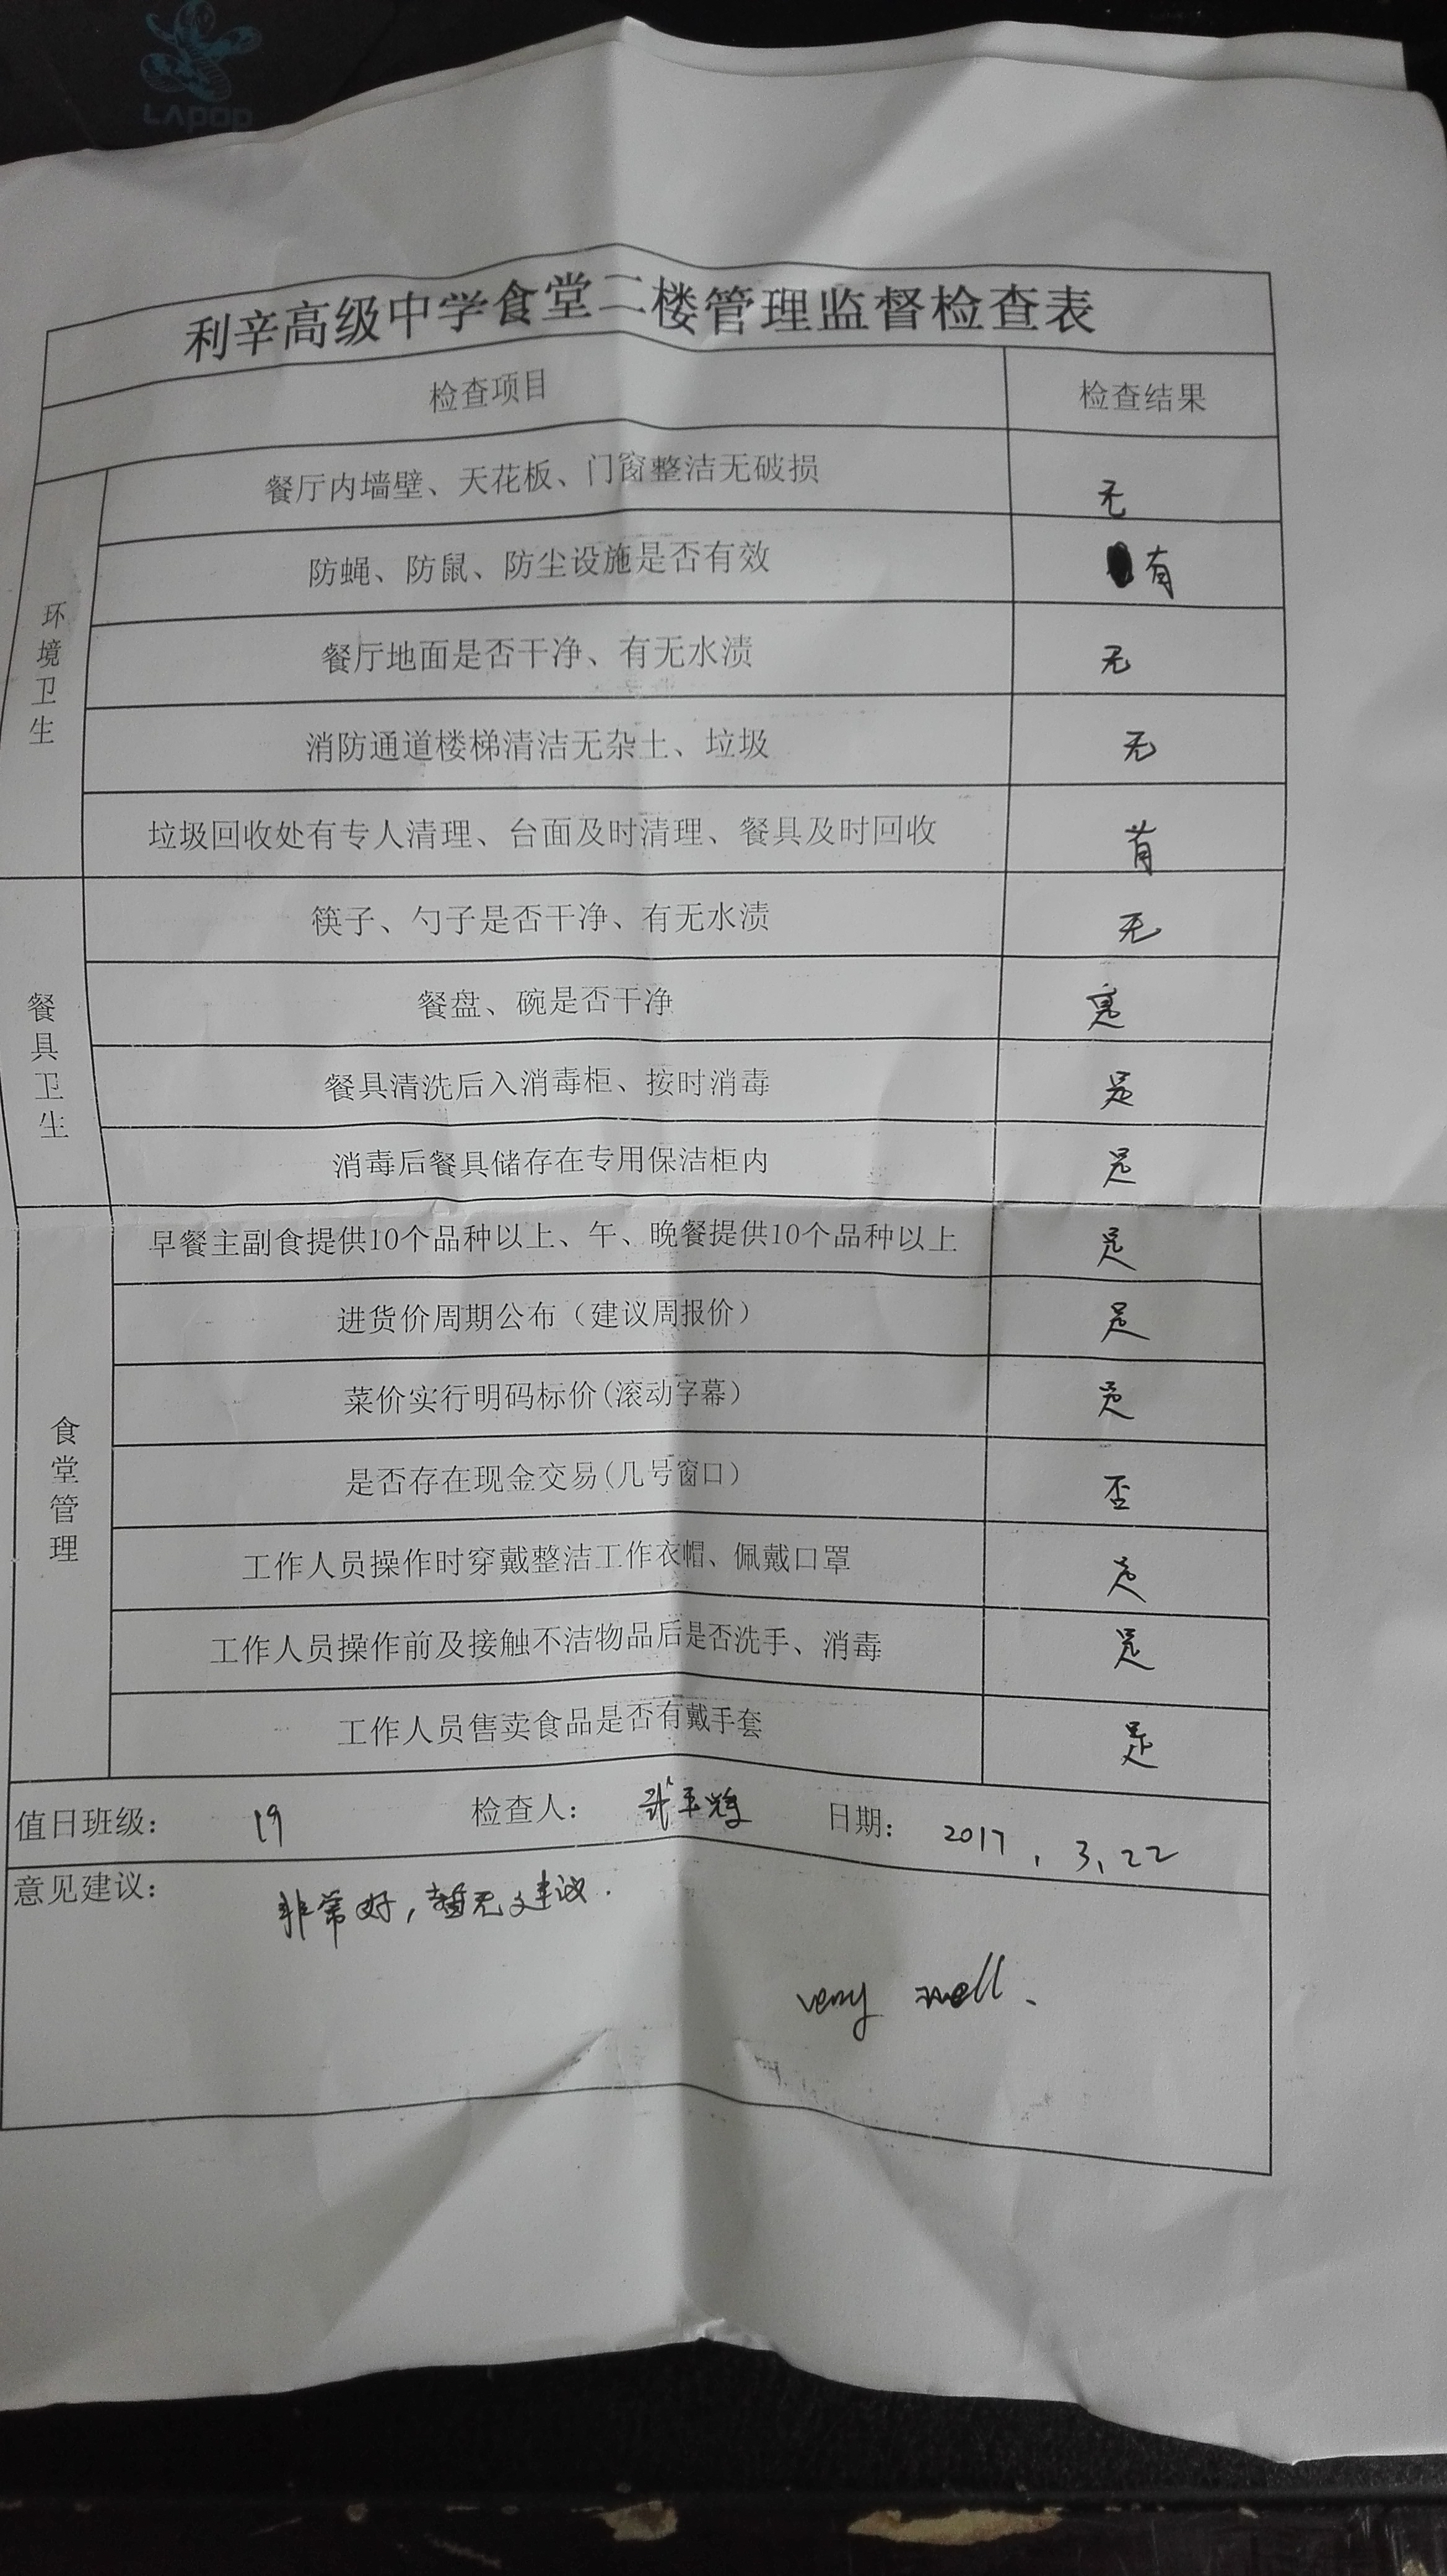 LAPOP
利辛高级中学食堂二楼管理监督检查表
检查项目 检查结果
环境卫生
餐厅内墙壁、天花板、门窗整洁无破损 无
防蝇、防鼠、防尘设施是否有效 有
餐厅地面是否干净、有无水渍 无
消防通道楼梯清洁无杂土、垃圾 无
垃圾回收处有专人清理、台面及时清理、餐具及时回收 有
餐具卫生
筷子、勺子是否干净、有无水渍 无
餐盘、碗是否干净
餐具清洗后入消毒柜、按时消毒 是
消毒后餐具储存在专用保洁柜内 是
食堂管理
早餐主副食提供10个品种以上、午、晚餐提供10个品种以上 是
进货价周期公布（建议周报价） 是
菜价实行明码标价(滚动字幕） 是
是否存在现金交易(几号窗口） 否
工作人员操作时穿戴整洁工作衣帽、佩戴口罩 是
工作人员操作前及接触不洁物品后是否洗手、消毒 是
工作人员售卖食品是否有戴手套 是
值日班级： 19 检查人： 日期： 2017.3.22
意见建议： 非常好，暂无建议.
very well.